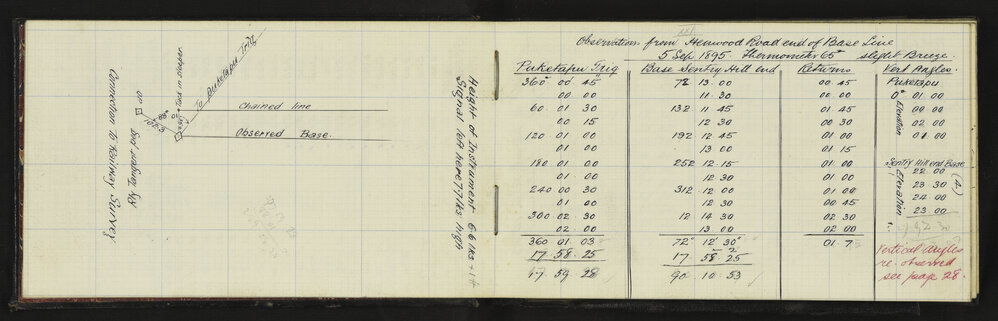 Observations from Henwood Road end of Base Line
5 Sep 1895. Thermometer 65° slight Breeze.
Puketapu Trig Base Sentry Hill end Returns Vert Angles.
360° 00' 45" 72 13 00 00 45 Puketapu
00 00 11 30 00 00 0° 01 00
60 01 30 132 11 45 01 45 00 00
00 15 12 30 00 30 02 00
120 01 00 192 12 45 01 00 01 00
01 00 13 00 01 15
Elevation
180 01 00 252 12 15 01 00 Sentry Hill end Base
01 00 12 30 01 00 22 00
240 00 30 312 12 00 01 00 23 30
01 00 12 30 00 45 24 00
300 02 30 12 14 30 02 30 23 00
02 00 13 00 02 00
Elevation
360 01 03 72° 12' 30" 01 7
17 58 25 17 58 25
17 59 28 90 10 53
Vertical angles
re-observed
see page 28.
Height of Instrument 6.6 lks
Signal left here 7.7 lks high
To Puketapu Trig
Chained line
Observed Base.
Connection to Ranway Survey